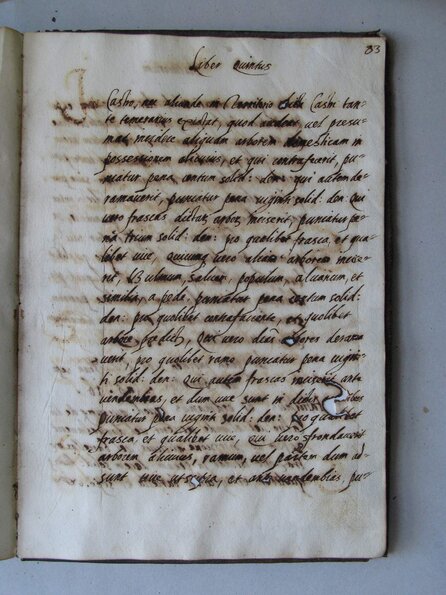 83
Liber Quintus
Castro, nec aliunde in Territorio dicti Castri tan-
te temerarius existat, quod audeat, vel presu-
mat incidere aliquam arborem domesticam in
possessionem alicuius, et qui contrafecerit, pu-
niatur pena centum solid: den: qui autem de-
ramaverit, puniatur pena viginti solid: den: Qui
vero frascas dictar arbor inciserit, puniatur pe-
na trium solid: den: pro qualibet frasca, et qua-
libet vice, quicunq vero aliam arborem incise-
rit, ulmum, salicem, populum, alvanum, et
similia, a pede, puniatur pena centum solid:
den: pro quolibet contrafaciente, et qualibet
arbore predict, Qui vero dictas arbores derama-
verit, pro quolibet ramo puniatur pena vigin-
ti solid: den: Qui autem frascas inciserit ante
vendembias, et dum uve sunt in
puniatur pena viginti solid: den: pro qualibet
frasca, et qualibet vice, qui vero frondaverit
arborem alicuius, ramum, vel partem dum ad-
sunt uve, et ante vendembias, pu-